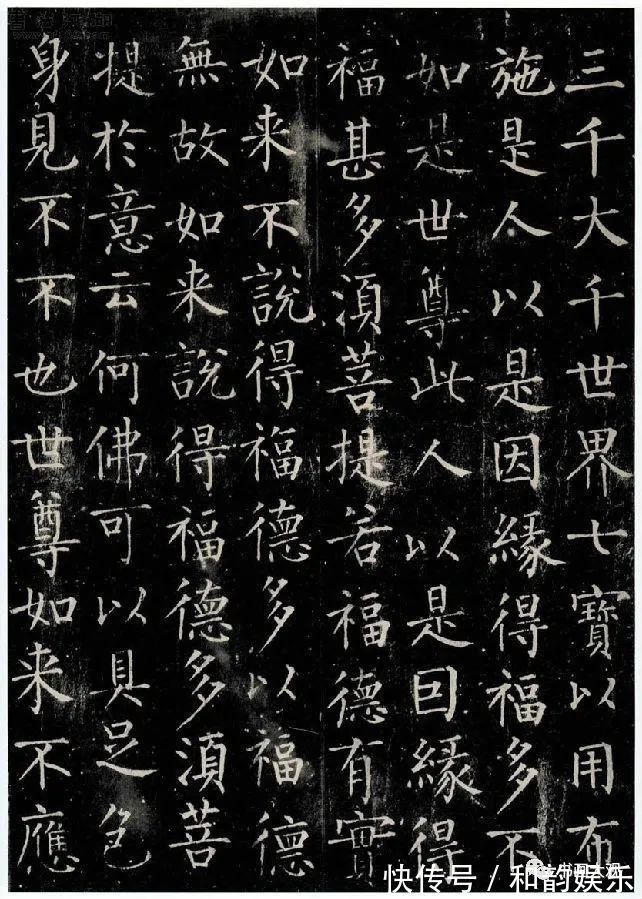 三千大千世界七寶以用布
施是人以是因緣得福多不
如是世尊此人以是囙緣得
福甚多須菩提若福德有實
如来不說得福德多以福德
無故如来說得福德多須菩
提於意云何佛可以具足色
身見不不也世尊如来不應
快传号 / 和韵娱乐